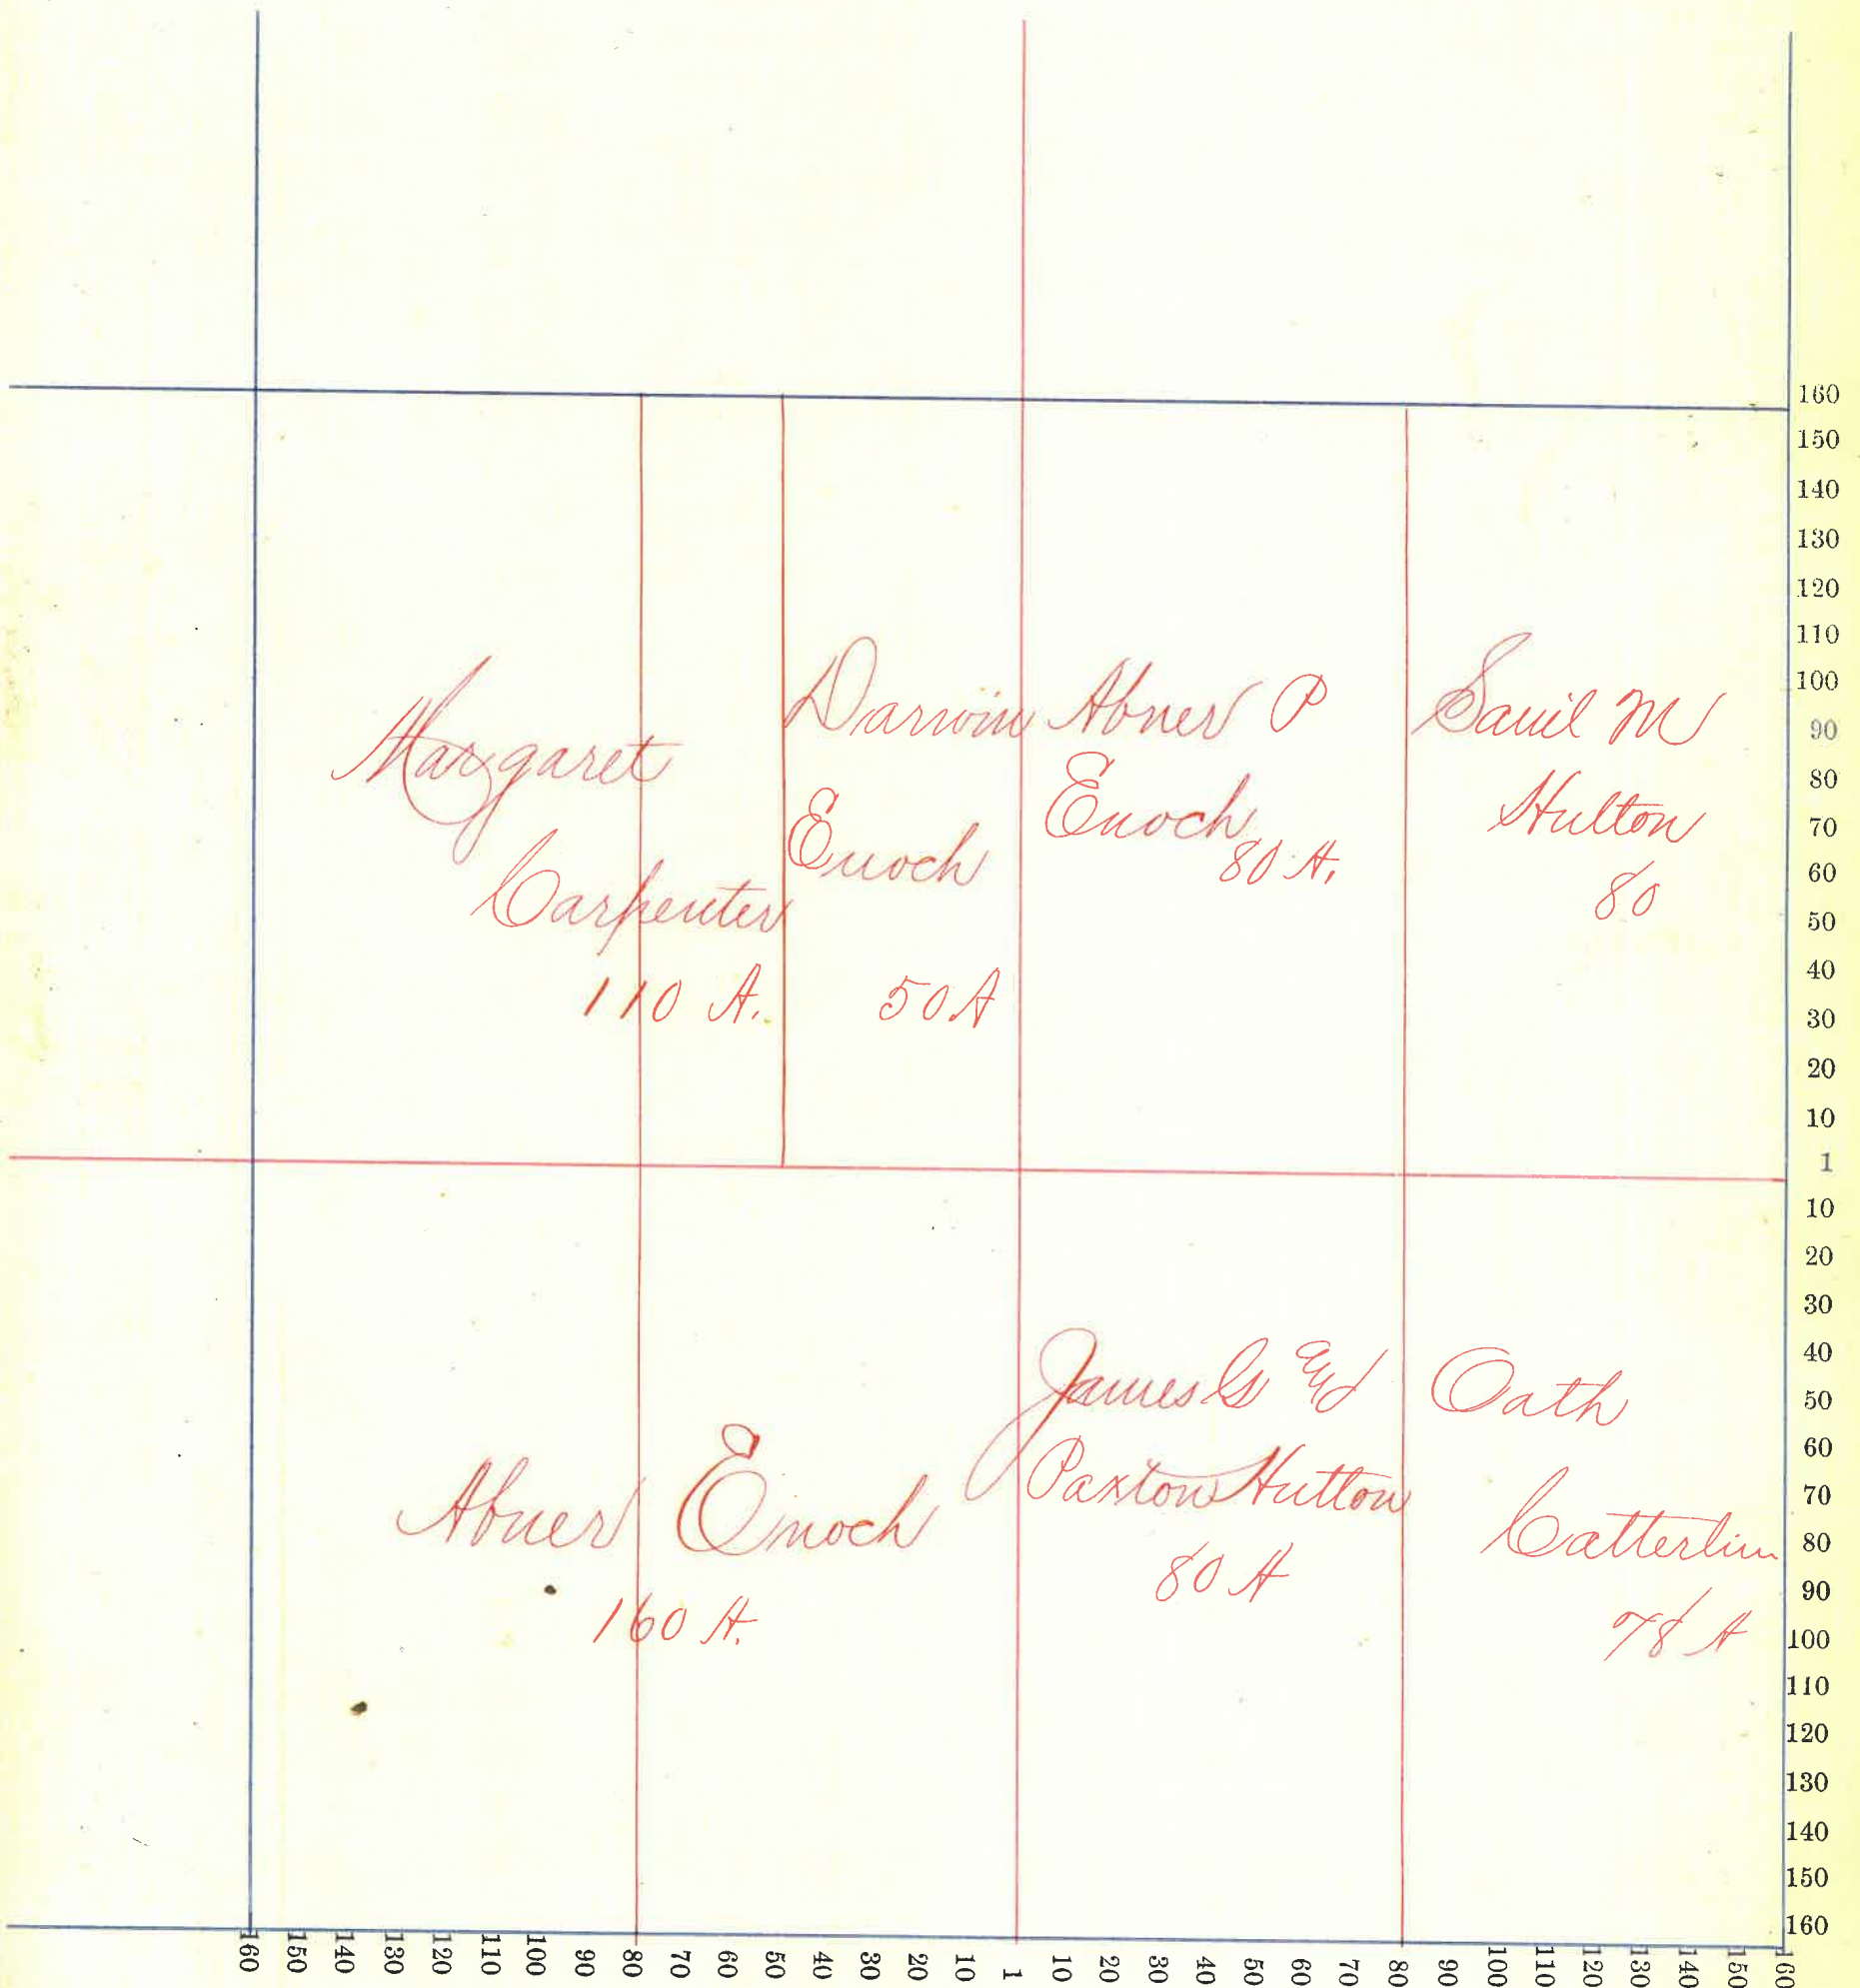 Margaret
Carpenter
110 A.
Darwin
Enoch
50 A
Abner P
Enoch
80 A.
Hutton
80
Abner Enoch
160 A.
James G and
Paxton Hutton
80 A
Oath
Catterlin
78 A
160
150
140
130
120
110
100
90
80
70
60
50
40
30
20
10
1
10
20
30
40
50
60
70
80
90
100
110
120
130
140
150
160
160 150 140 130 120 110 100 90 80 70 60 50 40 30 20 10 1 10 20 30 40 50 60 70 80 90 100 110 120 130 140 150 160